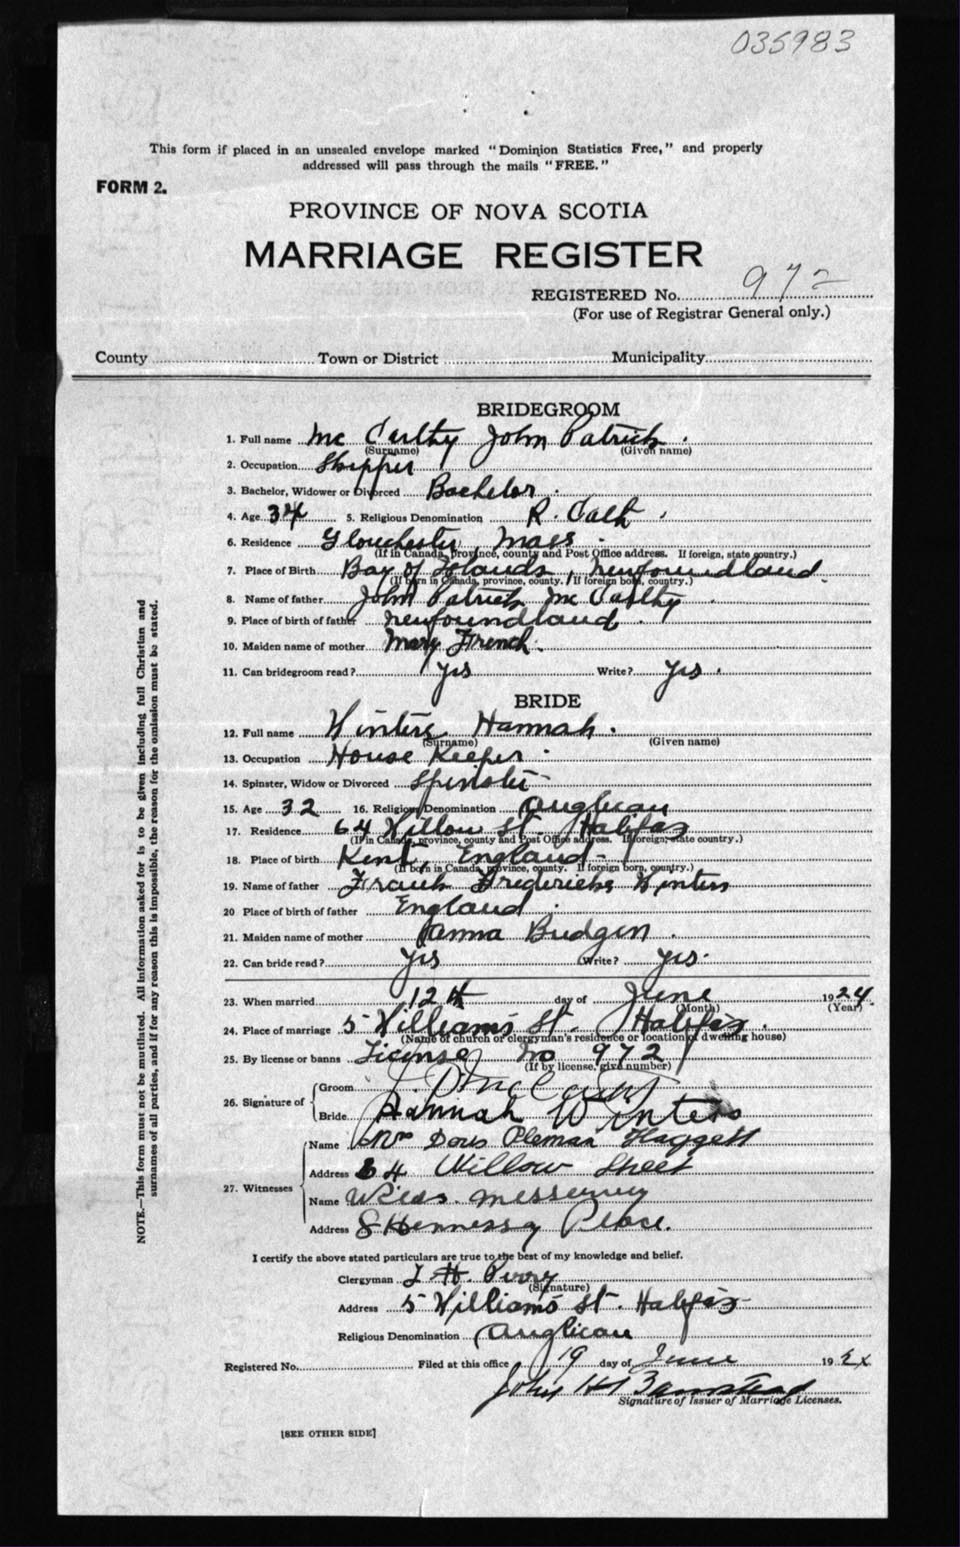 035983
This form if placed in an unsealed envelope marked "Dominion Statistics Free," and properly
addressed will pass through the mails "FREE."
FORM 2.
PROVINCE OF NOVA SCOTIA
MARRIAGE REGISTER
REGISTERED No. 972
(For use of Registrar General only.)
County Town or District Municipality
BRIDEGROOM
1. Full name Mc Carthy John Patrick.
(Surname) (Given name)
2. Occupation Skipper
3. Bachelor, Widower or Divorced Bachelor.
4. Age 34 5. Religious Denomination R. Cath.
6. Residence Glouchester, Mass.
(If in Canada, province, county and Post Office address. If foreign, state country.)
7. Place of Birth Bay of Islands, Newfoundland.
(If born in Canada, province, county. If foreign born, country.)
8. Name of father John Patrick Mc Carthy
9. Place of birth of father Newfoundland.
10. Maiden name of mother Mary French.
11. Can bridegroom read? Yes Write? Yes.
BRIDE
12. Full name Winters Hannah.
(Surname) (Given name)
13. Occupation House Keeper.
14. Spinster, Widow or Divorced Spinster
15. Age 32 16. Religious Denomination Anglican
17. Residence 64 Willow St. Halifax
(If in Canada, province, county and Post Office address. If foreign, state country.)
18. Place of birth Kent, England-
(If born in Canada, province, county. If foreign born, country.)
19. Name of father Frank Fredericks Winters
20 Place of birth of father England.
21. Maiden name of mother Anna Budgen.
22. Can bride read? Yes Write? Yes.
23. When married 12th day of June 1924.
(Month) (Year)
24. Place of marriage 5 Williams St. Halifax.
(Name of church or clergyman's residence or location of dwelling house)
25. By license or banns License No 972
(If by license, give number)
26. Signature of Groom J. P McCarthy
Bride Hannah Winters
27. Witnesses Name Mrs Doris Haggett
Address 64 Willow Street
Name
Address 8 Hennessy Place.
I certify the above stated particulars are true to the best of my knowledge and belief.
Clergyman H. Perry
(Signature)
Address 5 Williams St. Halifax
Religious Denomination Anglican
Registered No. Filed at this office 19 day of June 192
John H
Signature of Issuer of Marriage Licenses.
[SEE OTHER SIDE]
NOTE.—This form must not be mutilated. All information asked for is to be given including full Christian and
surnames of all parties, and if for any reason this is impossible, the reason for the omission must be stated.